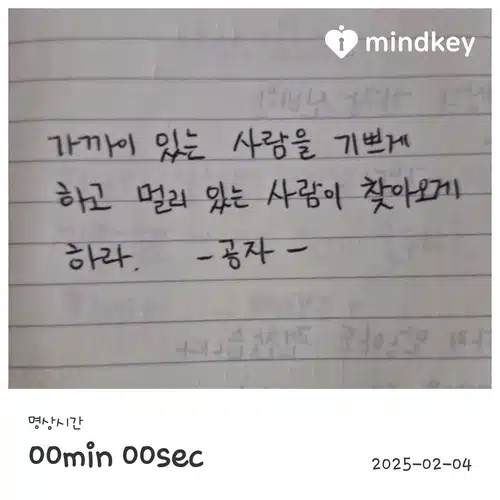 mindkey
가까이 있는 사람을 기쁘게
하고 멀리 있는 사람이 찾아오게
하라. -공자-
명상시간
00min 00sec
2025-02-04